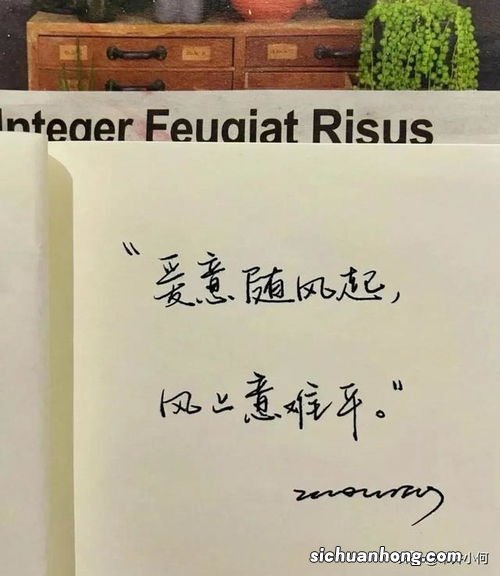 Integer Feugiat Risus
“爱意随风起，
风止意难平。”
小何
sichuanhong.com